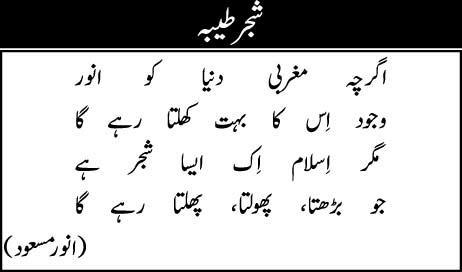 شجرِ طیبہ
اگرچہ مغربی دنیا کو انور
وجود اِس کا بہت کھلتا رہے گا
مگر اِسلام اِک ایسا شجر ہے
جو بڑھتا، پھولتا، پھلتا رہے گا
(انور مسعود)